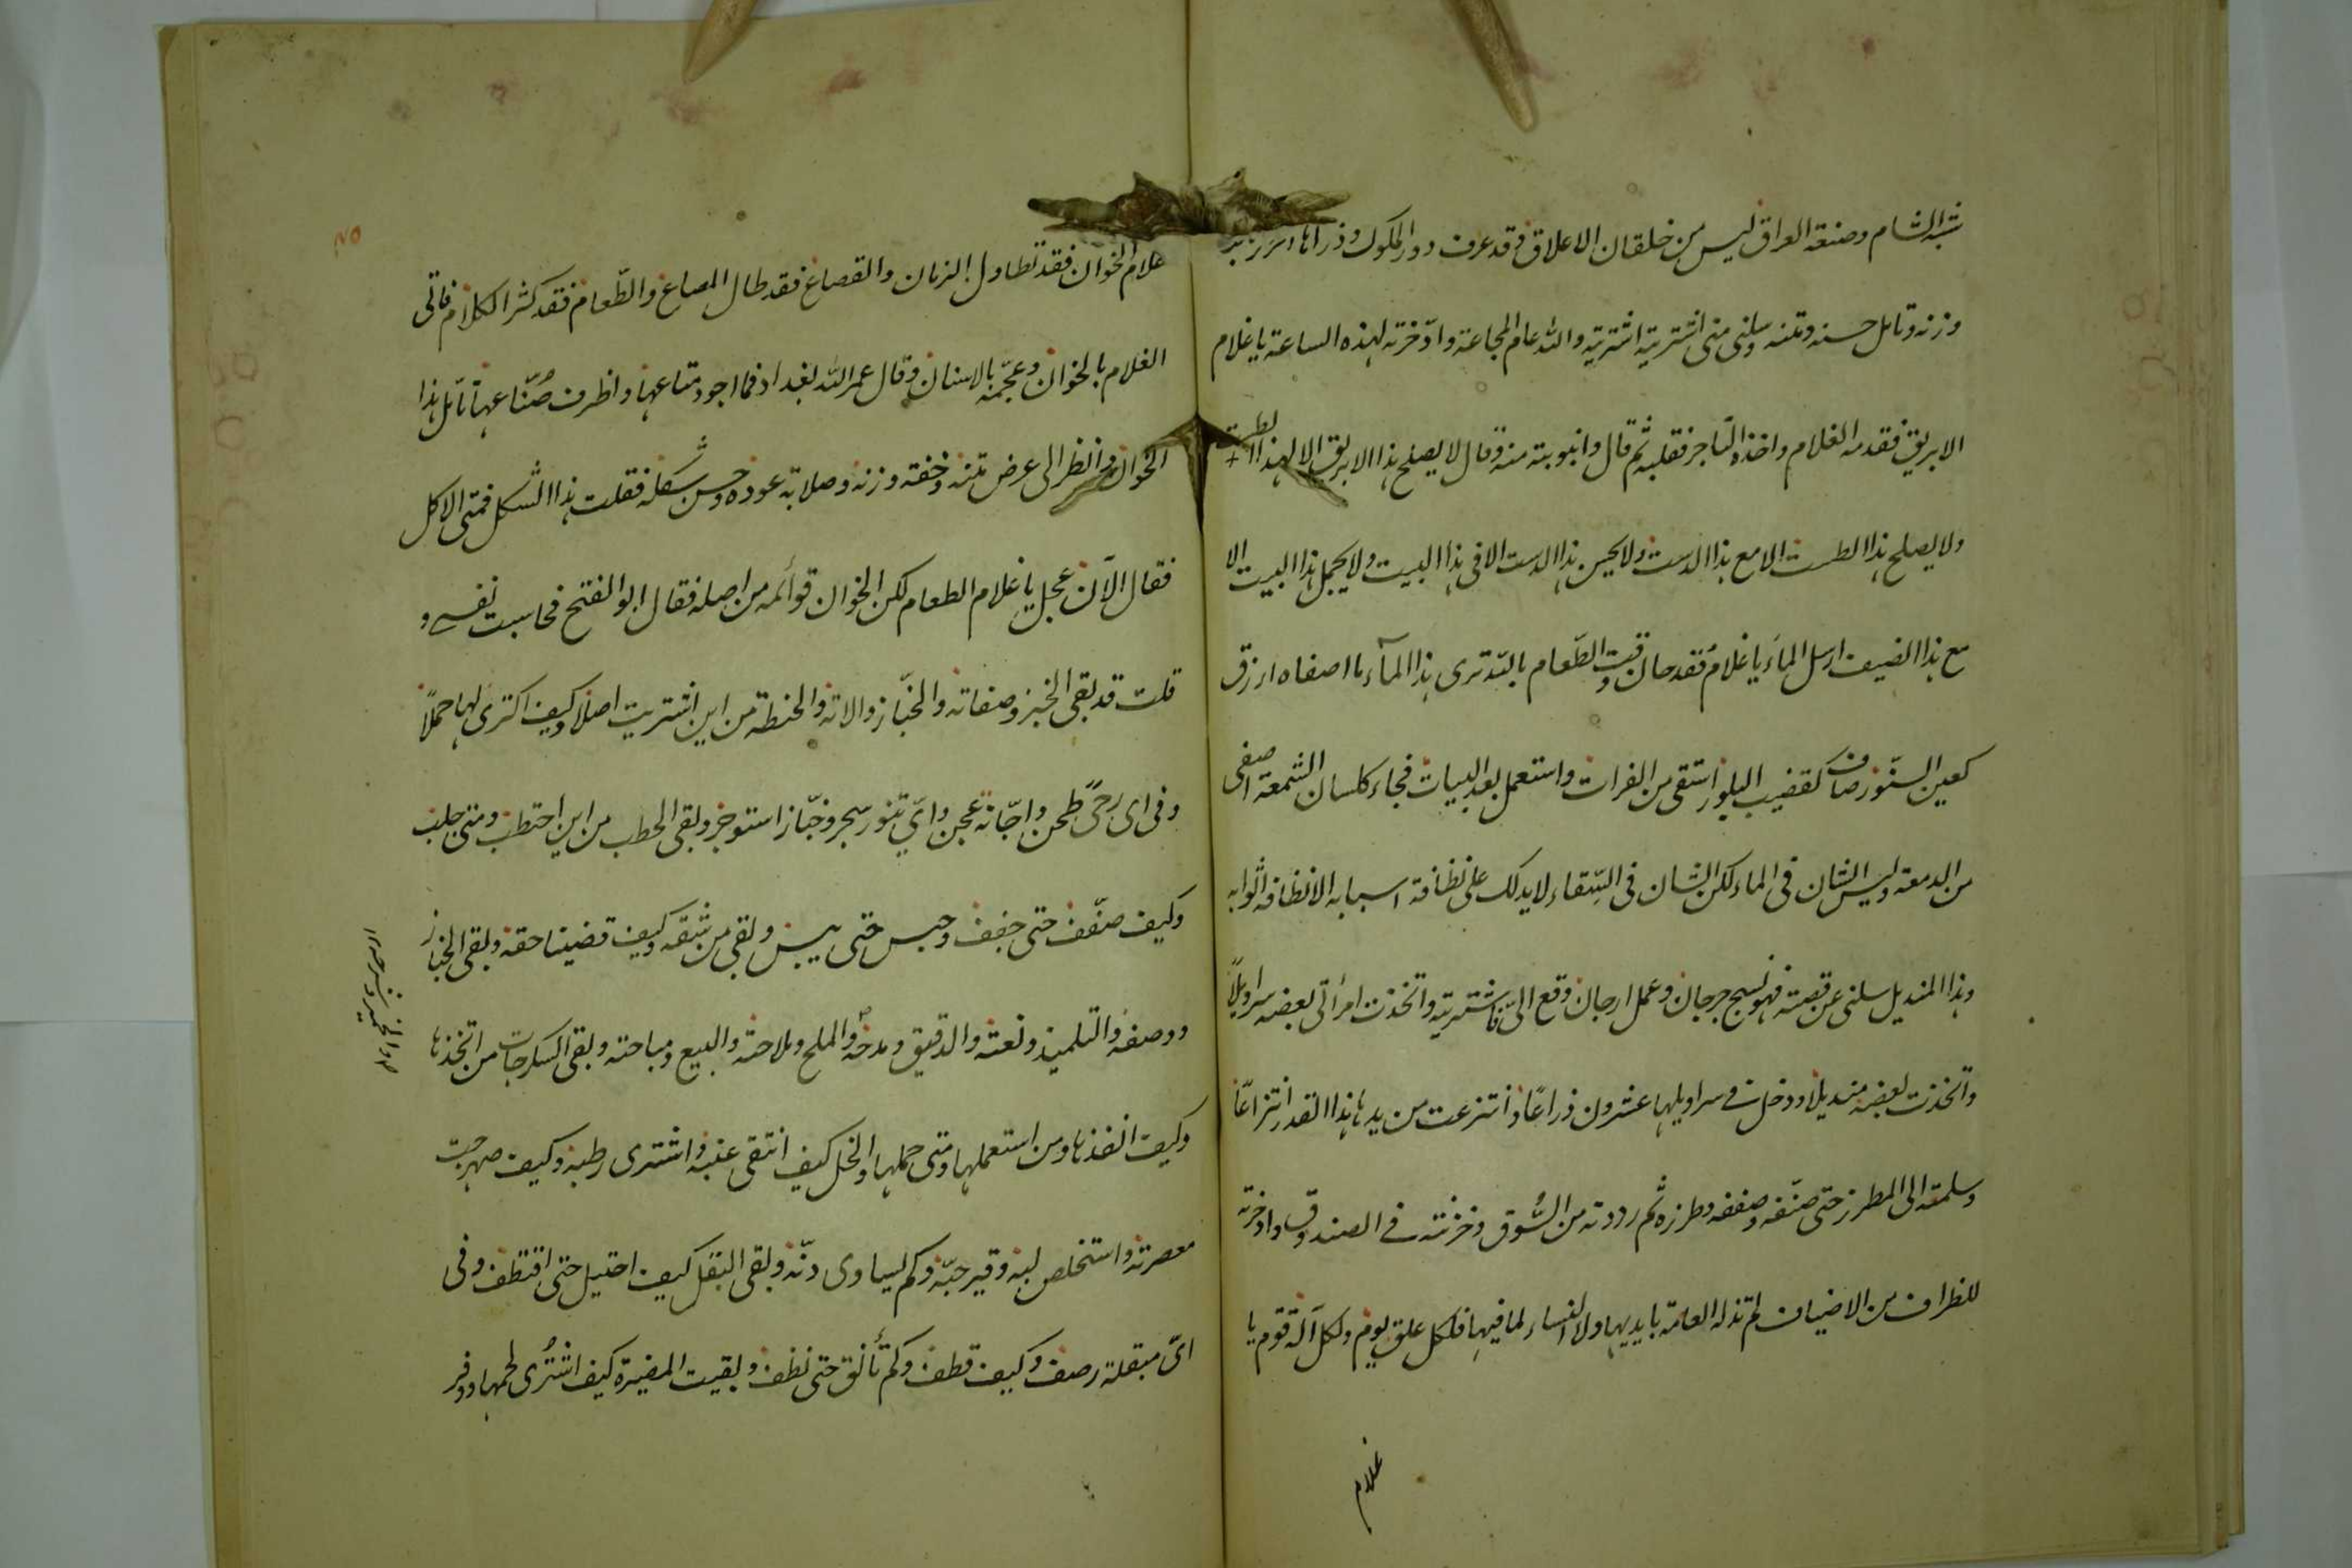 شبه الشام وصنعة العراق ليس من خلقان الاعلاق قد عرف دور الملوك و
وزنه وتامل حسنه ومتنه وسلنى متى اشتريته اشتريته والله عام المجاعة وادّخرته لهذه الساعة يا غلام
الابريق فقدمه الغلام واخذه التاجر فقلبه ثم قال وانبوبته منه وقال لا يصلح هذا الابريق الا لهذا الطست
ولا يصلح هذا الطست الا مع هذا الدست ولا يحسن هذا الدست الا فى هذا البيت ولا يجمل هذا البيت الا
مع هذا الضيف ارسل الماء يا غلام فقد حان وقت الطّعام بالله ترى هذا المآء ما اصفاه ازرق
كعين السنّور صاف كقضيب البلور استقى من الفرات واستعمل بعد البيات فجاء كلسان الشمعة اصفى
من الدمعة وليس الشان فى الماء لكن الشان فى السّقاء لا يدلك على نظافة اسبابه الا نظافة اثوابه
وهذا المنديل سلنى عن قصته فهو نسج جرجان وعمل ارجان وقع الىّ فاشتريته واتخذت امرأتى بعضه سراويلاً
واتخذت بعضه منديلا ودخل فى سراويلها عشرون ذراعًا وانتزعت من يدها هذا القدر انتزاعًا
وسلمته الى المطرز حتى صنّفه وصففه وطرزه ثم رددته من السُّوق وخزنته فى الصندوق وادخرته
للظراف من الاضياف لم تذله العامة بايديها ولا النساء لمافيها فلكل علق يوم ولكل آلة قوم يا
غلام
غلام الخوان فقد تطاول الزمان والقصاع فقد طال المصاع والطّعام فقد كثر الكلام فاتى
الغلام بالخوان وعجمه بالاسنان وقال عمر الله بغداد فما اجود متاعها واظرف صُنّاعها تأمّل هذا
الخوان وانظر الى عرض متنه وخفة وزنه وصلابة عوده وحسن شكله فقلت هذا الشكل فمتى الاكل
فقال الآن عجل يا غلام الطعام لكن الخوان قوائمه من اصله فقال ابو الفتح فجاست نفسى و
قلت قد بقى الخبز وصفاته والخبّاز والاته والحنطة من اين اشتريت اصلا وكيف اكترى لها حملاً
وفى اى رحىً طحن واجّانة عجن واىّ تنور سجر وخبّاز استوجر وبقى الحطب من اين احتطب ومتى جلب
وكيف صفّف حتى جفف وحبس حتى يبس وبقى من شقه وكيف قضينا حقه وبقى الخباز
ووصفه والتلميذ ونعته والدقيق ومدحه والملح وملاحته والبيع ومباحته وبقى السكرجات من اتخذها
وكيف انفذها ومن استعملها ومتى حملها والخل كيف انتقى عنبه واشترى رطبه وكيف صهرجت
معصرته واستخلص لبه وقير حبّه وكم يساوى دنّه وبقى البقل كيف احتيل حتى اقتطف وفى
اىّ مبقلة رصف وكيف قطف وكم تأنق حتى نظف وبقيت المضيرة كيف اشتُرى لحمها ووفر